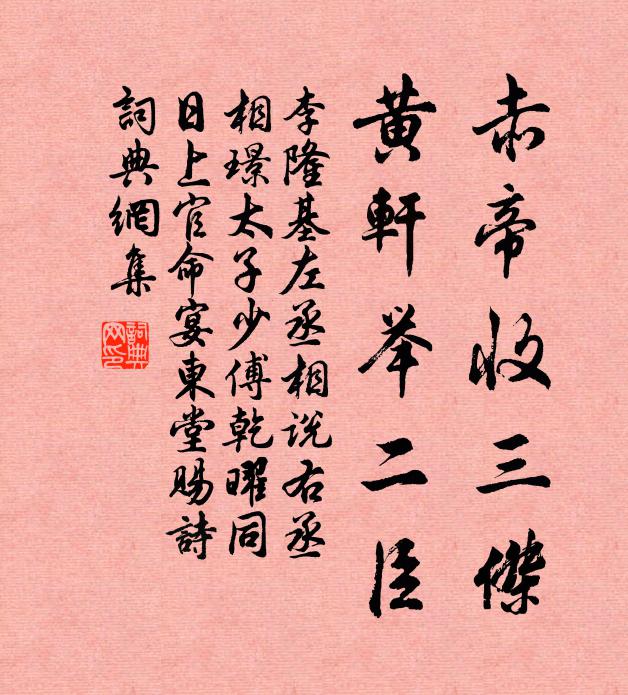 赤帝收三傑
黄軒举二臣
李隆基左丞相说右丞
相璟太子少傅乾曜同
日上官命宴東堂賜詩
詞典網集
詞典網印